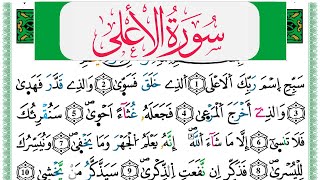 سُورَةُ الْأَعْلَى
سَبِّحِ اسْمَ رَبِّكَ الْأَعْلَى ١ الَّذِي خَلَقَ فَسَوَّىٰ ٢ وَالَّذِي قَدَّرَ فَهَدَىٰ
٣ وَالَّذِي أَخْرَجَ الْمَرْعَىٰ ٤ فَجَعَلَهُ غُثَاءً أَحْوَىٰ ٥ سَنُقْرِئُكَ
فَلَا تَنْسَىٰ ٦ إِلَّا مَا شَاءَ اللَّهُ إِنَّهُ يَعْلَمُ الْجَهْرَ وَمَا يَخْفَىٰ ٧ وَنُيَسِّرُكَ
لِلْيُسْرَىٰ ٨ فَذَكِّرْ إِنْ نَفَعَتِ الذِّكْرَىٰ ٩ سَيَذَّكَّرُ مَنْ يَخْشَىٰ ١٠